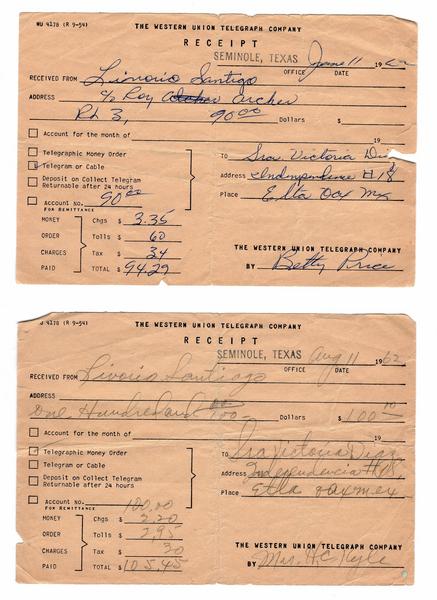 WU 4178 (R 9-54)
THE WESTERN UNION TELEGRAPH COMPANY
RECEIPT
SEMINOLE, TEXAS June 11 1962
OFFICE DATE
RECEIVED FROM Livorio Santigo
ADDRESS c/o Roy Archer
Rt 3, 90.00 Dollars $
Account for the month of 19
Telegraphic Money Order
Telegram or Cable
Deposit on Collect Telegram
Returnable after 24 hours
Account No. 90.00
FOR REMITTANCE
TO Sra. Victoria
Address Independence # 18
Place Etla Oax Mx
MONEY Chgs $ 3.35
ORDER Tolls $ 60
CHARGES Tax $ 34
PAID TOTAL $ 94.29
THE WESTERN UNION TELEGRAPH COMPANY
BY Betty Price
U 4178 (R 9-54)
THE WESTERN UNION TELEGRAPH COMPANY
RECEIPT
SEMINOLE, TEXAS Aug 11 1962
OFFICE DATE
RECEIVED FROM Livorio Santiago
ADDRESS
One Hundred and 00/100 Dollars $ 100.00
Account for the month of 19
Telegraphic Money Order
Telegram or Cable
Deposit on Collect Telegram
Returnable after 24 hours
Account No. 100.00
FOR REMITTANCE
TO Sra Victoria Diaz
Address Independencia # 18,
Place Etla Oax Mex
MONEY Chgs $ 2.20
ORDER Tolls $ 2.95
CHARGES Tax $ 30
PAID TOTAL $ 105.45
THE WESTERN UNION TELEGRAPH COMPANY
BY Mrs. H.C. Kyle